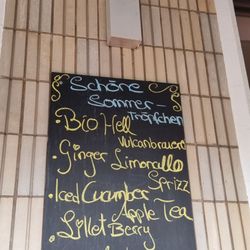 Schöne
Sommer-
Tröpfchen
• Bio Hell
Vulcanbrauerei
• Ginger Limoncello
Sprizz
• Iced Cucumber-
Apple Tea
• Lillet Berry